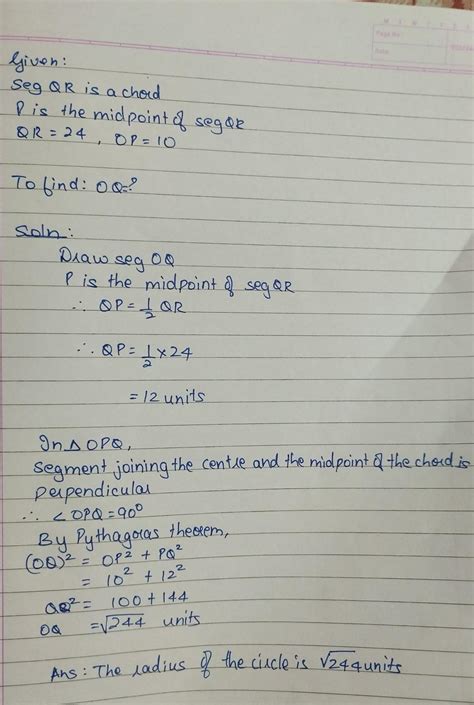 Page No:
Date:
Given:
Seg QR is a chord
P is the midpoint of seg QR
QR = 24 , OP = 10
To find: OQ=?
Soln:
Draw seg OQ
P is the midpoint of seg QR
∴ QP = 1/2 QR
∴ QP = 1/2 × 24
= 12 units
In △ OPQ,
Segment joining the centre and the midpoint of the chord is
perpendicular
∴ ∠OPQ = 90°
By Pythagoras theorem,
(OQ)² = OP² + PQ²
= 10² + 12²
OQ² = 100 + 144
OQ = √244 units
Ans : The radius of the circle is √244 units